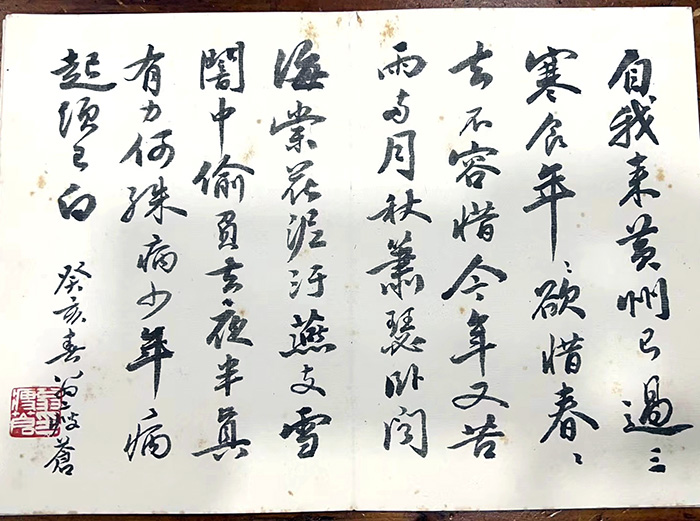 自我来黄州已過三
寒食年〻欲惜春〻
去不容惜今年又苦
雨两月秋蕭瑟卧闻
海棠花泥汙燕支雪
闇中偷負去夜半真
有力何殊病少年病
起须已白
癸亥春 蒼